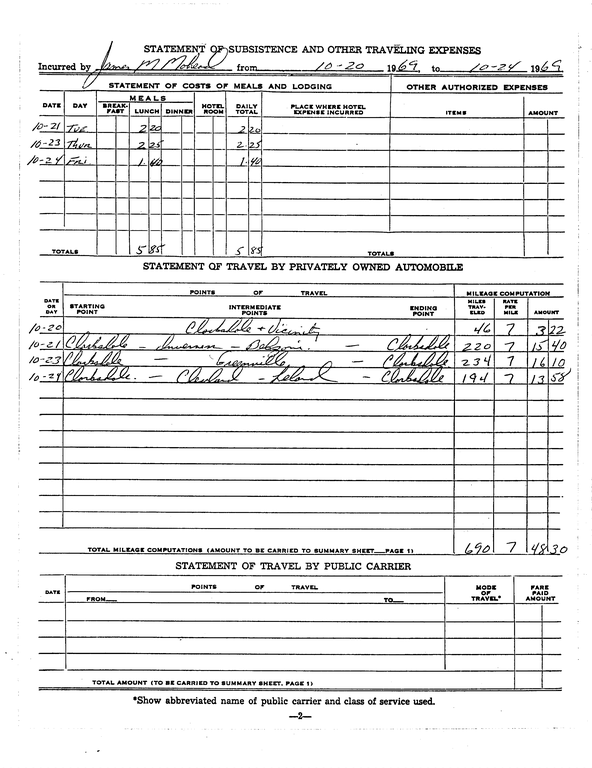 STATEMENT OF SUBSISTENCE AND OTHER TRAVELING EXPENSES
Incurred by James M Mohead from 10-20 1969, to 10-24 1969
STATEMENT OF COSTS OF MEALS AND LODGING OTHER AUTHORIZED EXPENSES
MEALS
DATE DAY BREAK-FAST LUNCH DINNER HOTEL ROOM DAILY TOTAL PLACE WHERE HOTEL EXPENSE INCURRED ITEMS AMOUNT
10-21 Tue 2 20 2 20
10-23 Thur 2 25 2 25
10-24 Fri 1 40 1 40
TOTALS 5 85 5 85 TOTALS
STATEMENT OF TRAVEL BY PRIVATELY OWNED AUTOMOBILE
POINTS OF TRAVEL MILEAGE COMPUTATION
DATE OR DAY STARTING POINT INTERMEDIATE POINTS ENDING POINT MILES TRAV-ELED RATE PER MILE AMOUNT
10-20 Clarksdale + Vicinity 46 7 3 22
10-21 Clarksdale - Inverness - Belzoni - Clarksdale 220 7 15 40
10-23 Clarksdale - Greenville - Clarksdale 234 7 16 10
10-24 Clarksdale - Cleveland - Leland - Clarksdale 194 7 13 58
TOTAL MILEAGE COMPUTATIONS (AMOUNT TO BE CARRIED TO SUMMARY SHEET__PAGE 1) 690 7 48 30
STATEMENT OF TRAVEL BY PUBLIC CARRIER
DATE POINTS OF TRAVEL MODE OF TRAVEL* FARE PAID AMOUNT
FROM__ TO__
TOTAL AMOUNT (TO BE CARRIED TO SUMMARY SHEET, PAGE 1)
*Show abbreviated name of public carrier and class of service used.
—2—